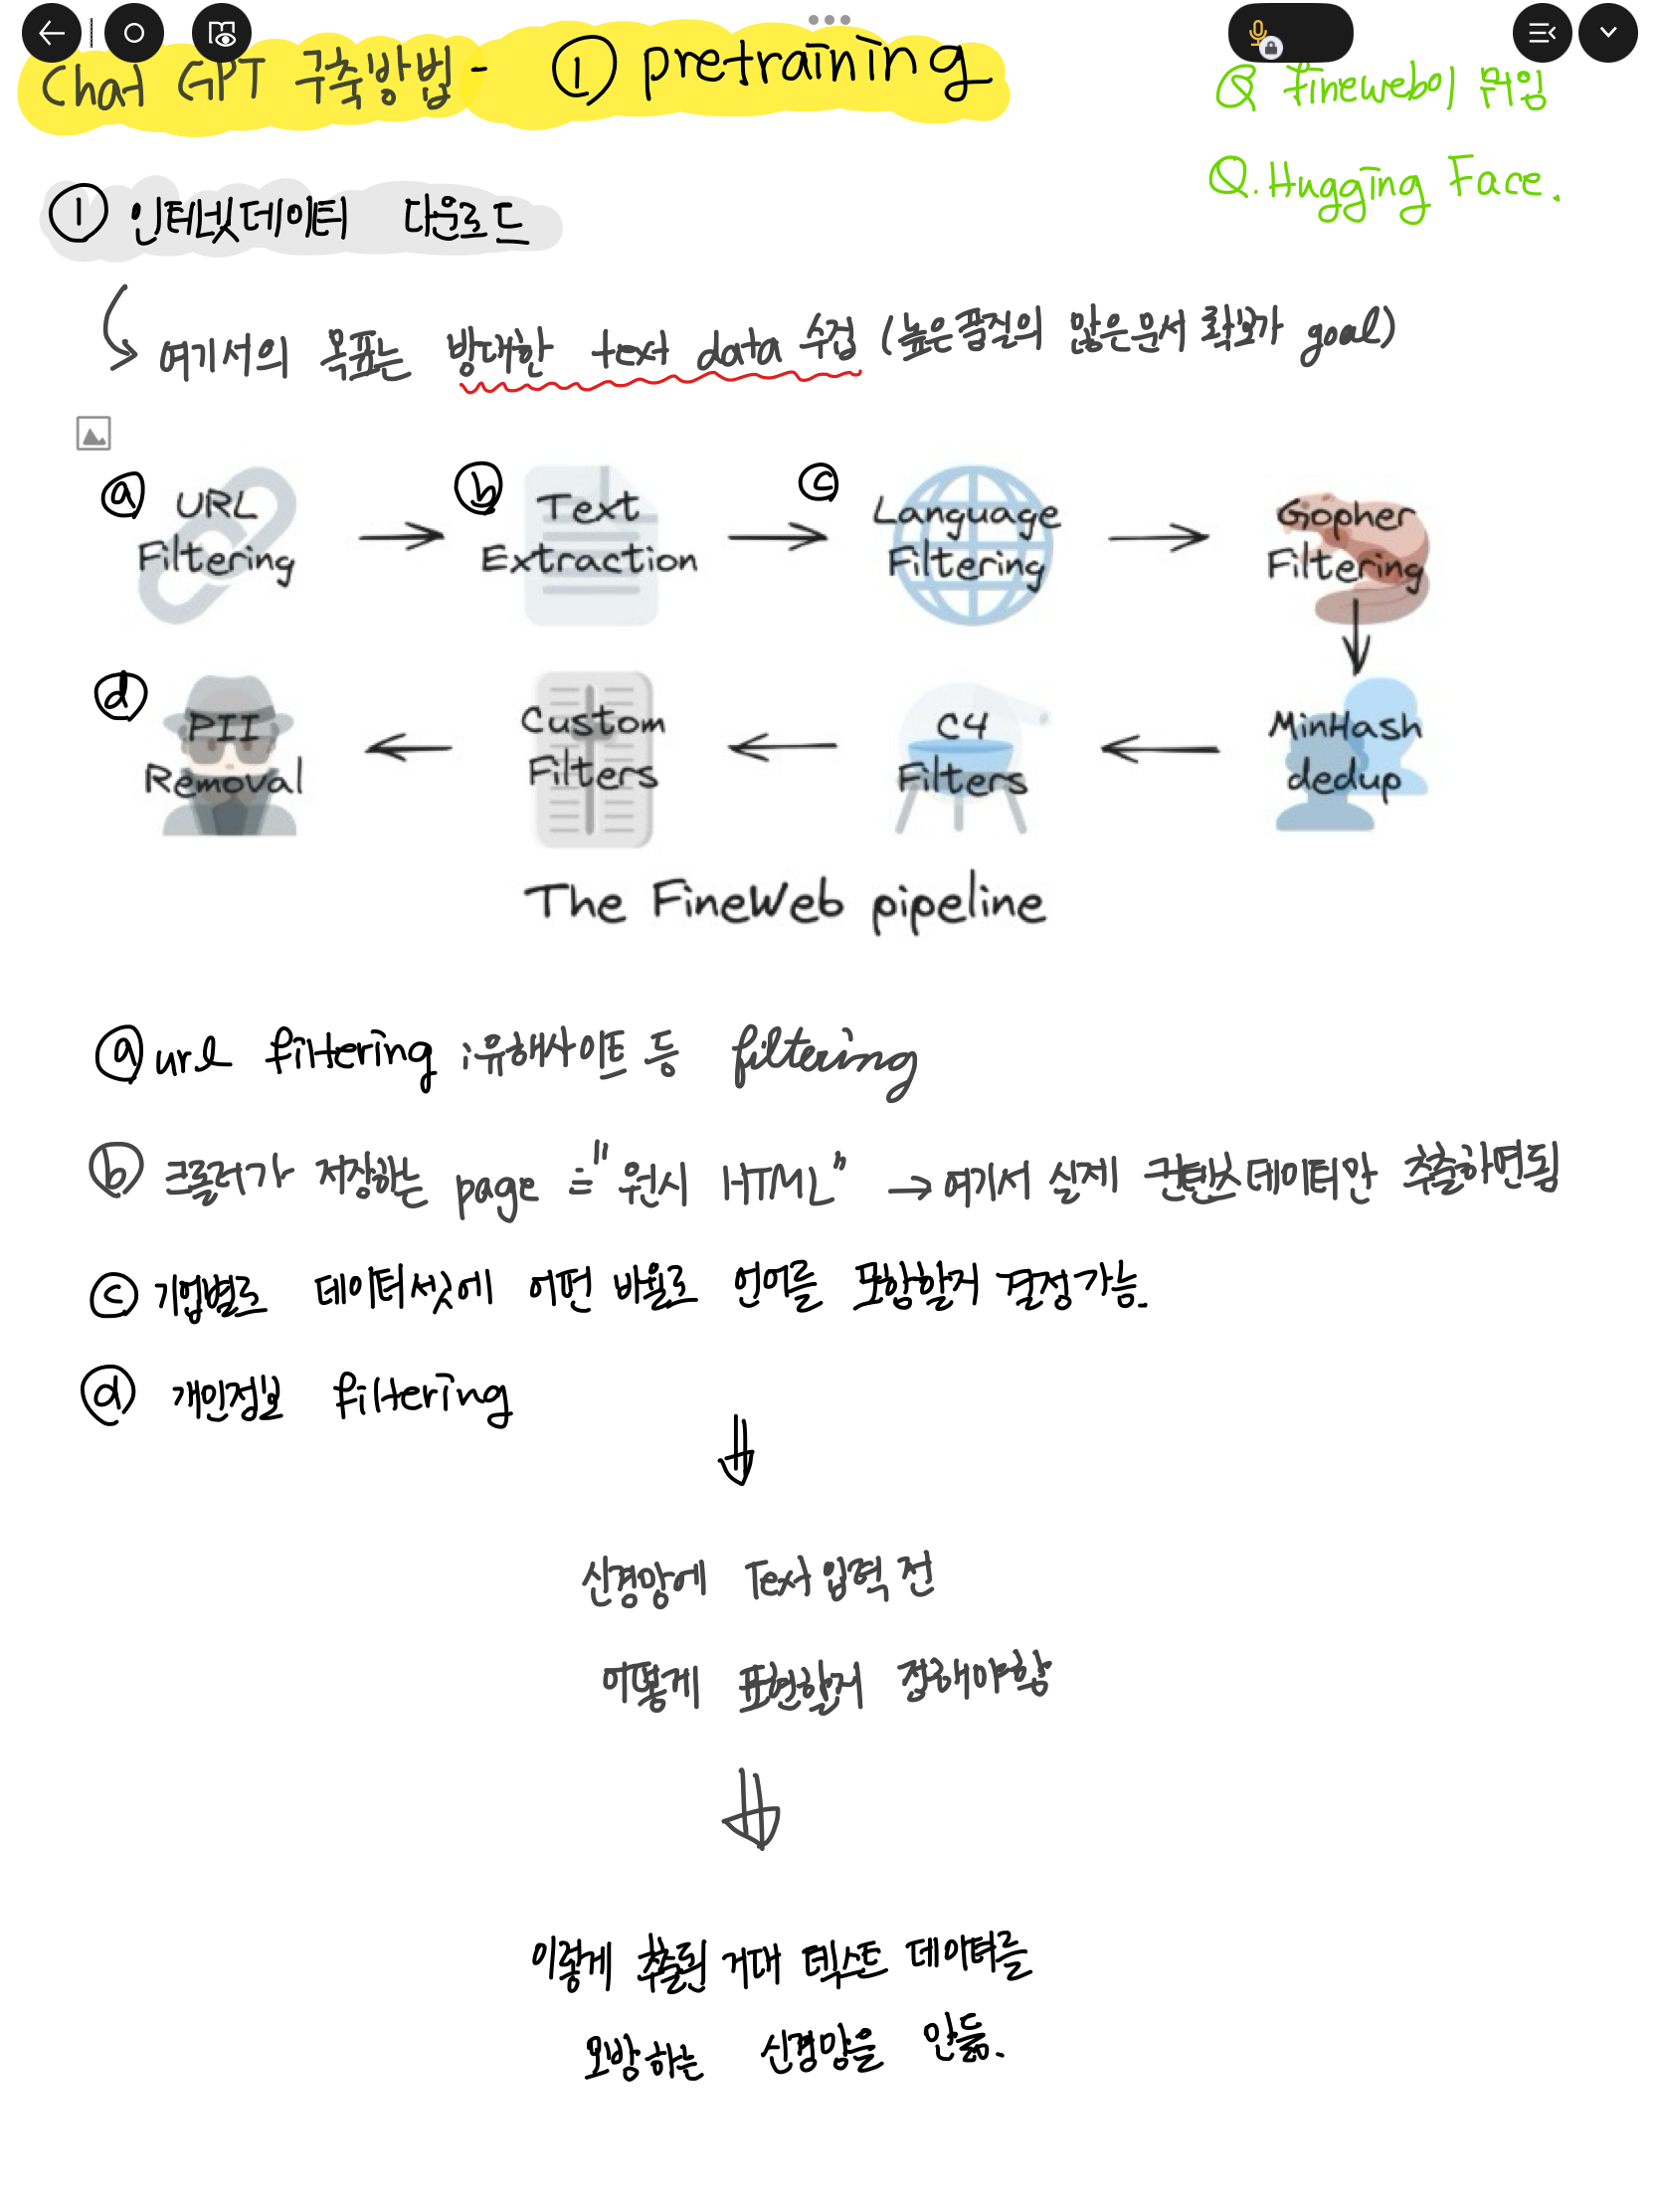 Chat GPT 구축방법 - ① pretraining
Q fineweb이 뭐임
Q. Hugging Face.
① 인터넷데이터 다운로드
여기서의 목표는 방대한 text data 수집 (높은품질의 많은문서 확보가 goal)
ⓐ URL Filtering
ⓑ Text Extraction
ⓒ Language Filtering
Gopher Filtering
ⓓ PII Removal
Custom Filters
C4 Filters
MinHash dedup
The FineWeb pipeline
ⓐ url filtering : 유해사이트 등 filtering
ⓑ 크롤러가 저장하는 page = "원시 HTML" → 여기서 실제 컨텐츠데이터만 추출하면됨
ⓒ 기업별로 데이터셋에 어떤 비율로 언어를 포함할지 결정가능.
ⓓ 개인정보 filtering
신경망에 Text 입력 전
어떻게 표현할지 정해야함
이렇게 추출된 거대 텍스트 데이터를
모방하는 신경망을 만듦.